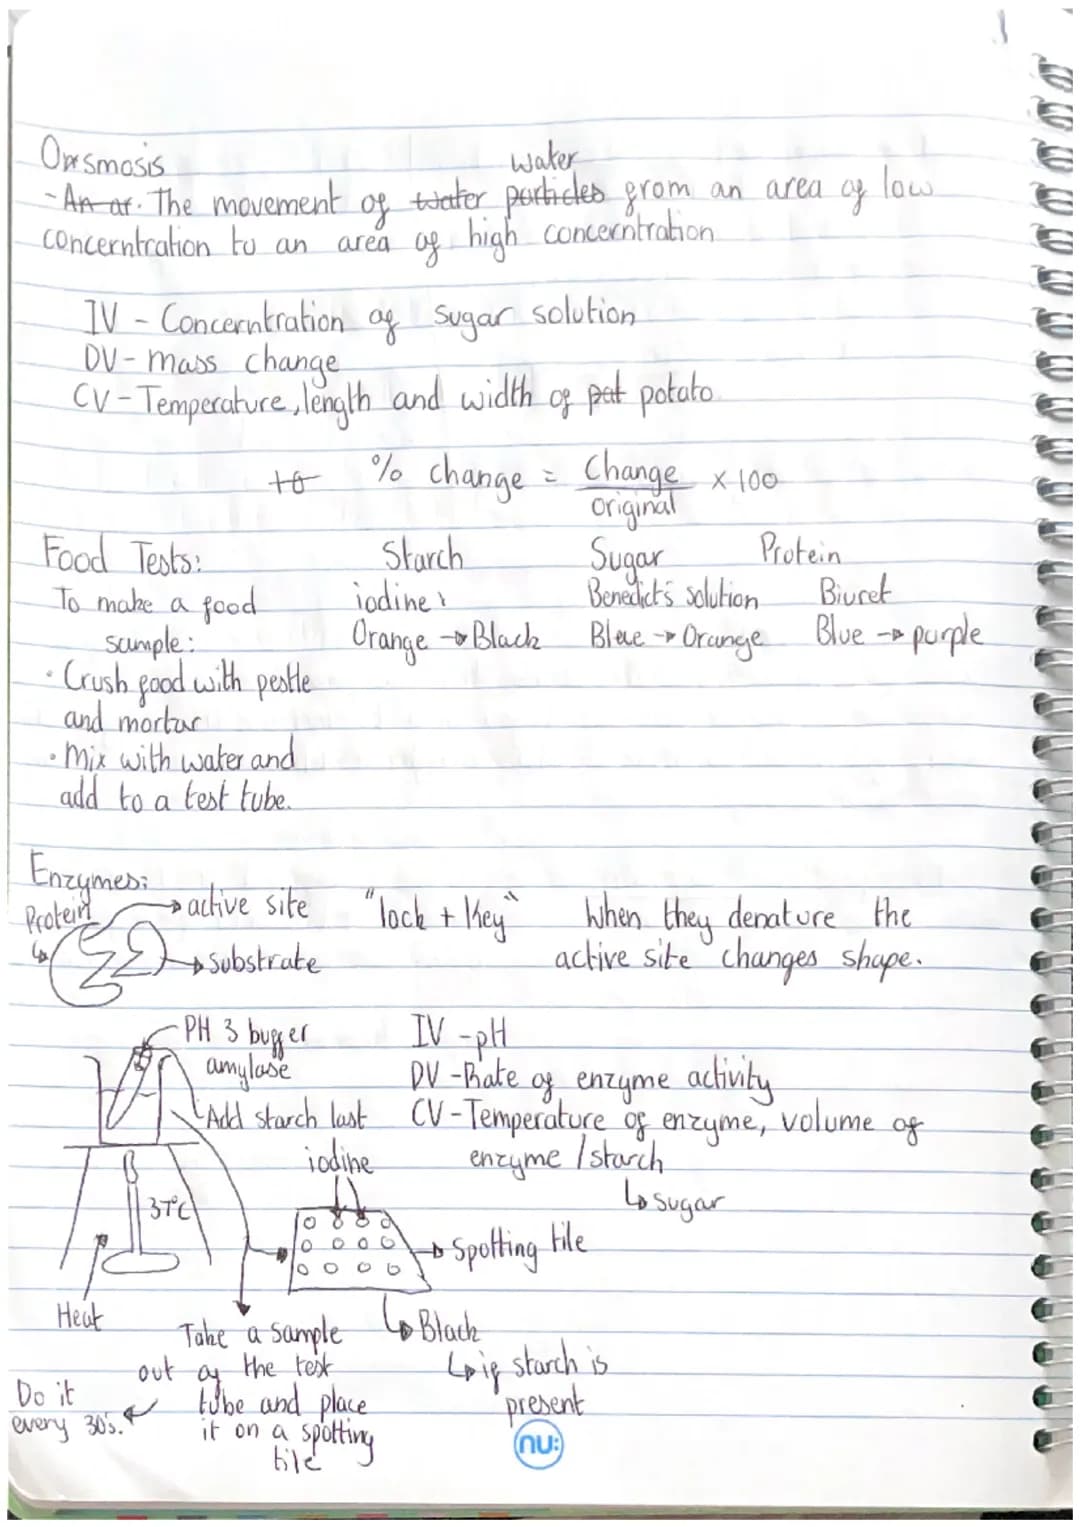 Osmosis
water
- An ar. The movement of water particles from an area of low
concerntration to an area of high concerntration
IV - Concerntration of sugar solution
DV - mass change
CV - Temperature, length and width of pat potato
to % change = Change / original x 100
Food Tests: Starch Sugar Protein
To make a food iodine: Benedict's solution Biuret
sample: Orange → Black Blue → Orange Blue → purple
• Crush food with pestle
and mortar
• Mix with water and
add to a test tube.
Enzymes:
Protein → active site "lock + Key" When they denature the
→ Substrate active site changes shape.
PH 3 buffer IV - pH
amylase DV - Rate of enzyme activity
Add starch last CV - Temperature of enzyme, volume of
iodine enzyme / starch
↳ sugar
37°C
→ Spotting tile
Heat
Take a sample ↳ Black
out of the test ↳ if starch is
Do it tube and place present
every 30s. ← it on a spotting
tile
nu: